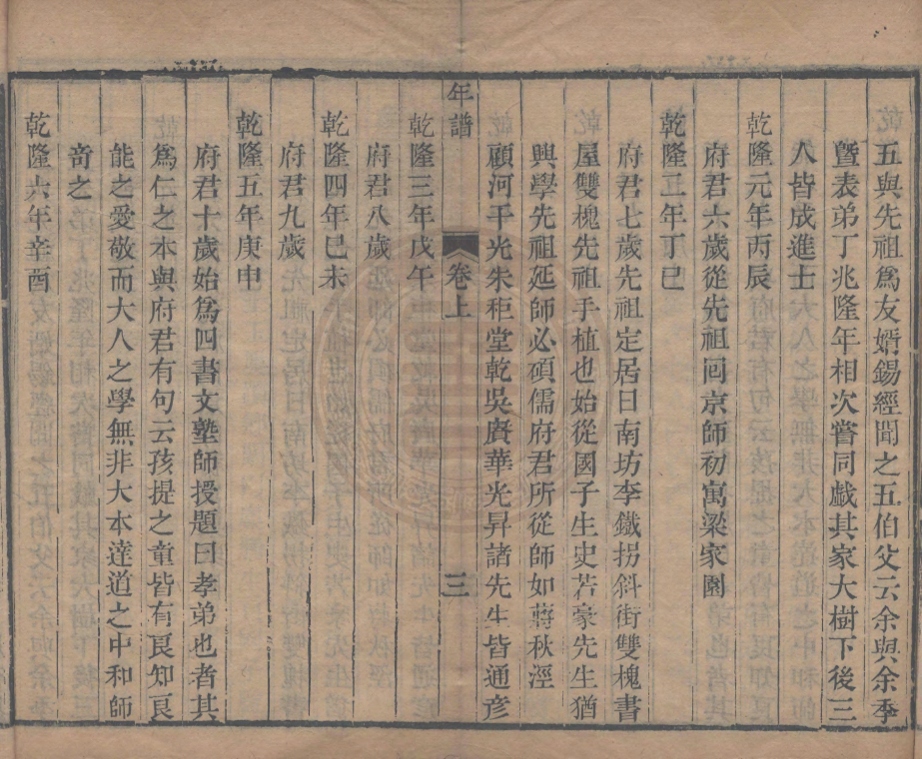 五與先祖爲友婿錫經聞之五伯父云余與余季
暨表弟丁兆隆年相次嘗同戲其家大樹下後三
人皆成進士
乾隆元年丙辰
府君六歲從先祖回京師初寓梁家園
乾隆二年丁巳
府君七歲先祖定居日南坊李鐵拐斜街雙槐書
屋雙槐先祖手植也始從國子生史若豪先生猶
興學先祖延師必碩儒府君所從師如蔣秋涇
顧河干光朱秬堂乾吳賡華光昇諸先生皆通彥
年譜 卷上 三
乾隆三年戊午
府君八歲
乾隆四年巳未
府君九歲
乾隆五年庚申
府君十歲始爲四書文塾師授題曰孝弟也者其
爲仁之本與府君有句云孩提之童皆有良知良
能之愛敬而大人之學無非大本達道之中和師
奇之
乾隆六年辛酉